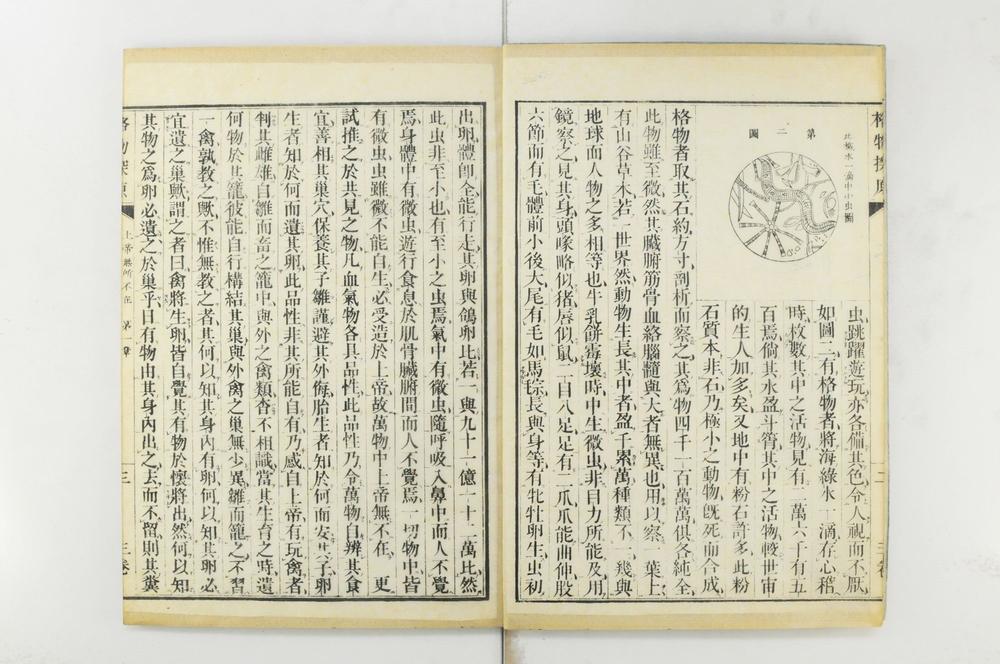 格物探原
第二圖
此檥水一滴中小虫圖
虫跳躍遊玩亦各備其色令人視而不厭
如圖二有格物者將海綠水一滴在心稽
時枚數其中之活物見有二萬六千有五
百焉倘其水盈斗筲其中之活物較世宙
的生人加多矣又地中有粉石許多此粉
石質本非石乃極小之動物旣死而合成
格物者取其石約方寸剖析而察之其爲物四千一百萬萬俱各純全
此物雖至微然其臟腑筋骨血絡腦髓與大者無異也用以察一葉上
有山谷草木若一世界然動物生長其中者盈千累萬種類不一幾與
地球而人物之多相等也牛乳餅霉壞時中生微虫非目力所能及用
鏡察之見其身頭喙略似猪唇似鼠二目八足足有二爪爪能曲伸股
六節而有毛體前小後大尾有毛如馬鬃長與身等有牝牡卵生虫初
出卵體卽全能行走其卵與鴿卵比若一與九十一億一十二萬比然
此虫非至小也有至小之虫焉氣中有微虫隨呼吸入鼻中而人不覺
焉身體中有微虫遊行食息於肌骨臟腑間而人不覺焉一切物中皆
有微虫虫雖微不能自生必受造於上帝故萬物中上帝無不在 更
試推之於共見之物凡血氣物各具品性此品性乃令萬物自辨其食
宜善相其巢穴保養其子雛謹避其外侮胎生者知於何而安其子卵
生者知於何而遺其卵此品性非其所能自有乃感自上帝有玩禽者
判其雌雄自雛而畜之籠中與外之禽類杳不相識當其生育之時遺
何物於其籠彼能自行構結其巢與外禽之巢無少異雛而籠之不習
一禽孰教之歟不惟無教之者其何以知其身內有卵何以知其卵必
宜遺之巢歟謂之者曰禽將生卵皆自覺其有物於懷將出然何以知
其物之爲卵必遺之於巢乎曰有物由其身內出之去而不留則其糞
格物探原
上帝無所不在 第一章
三
三卷